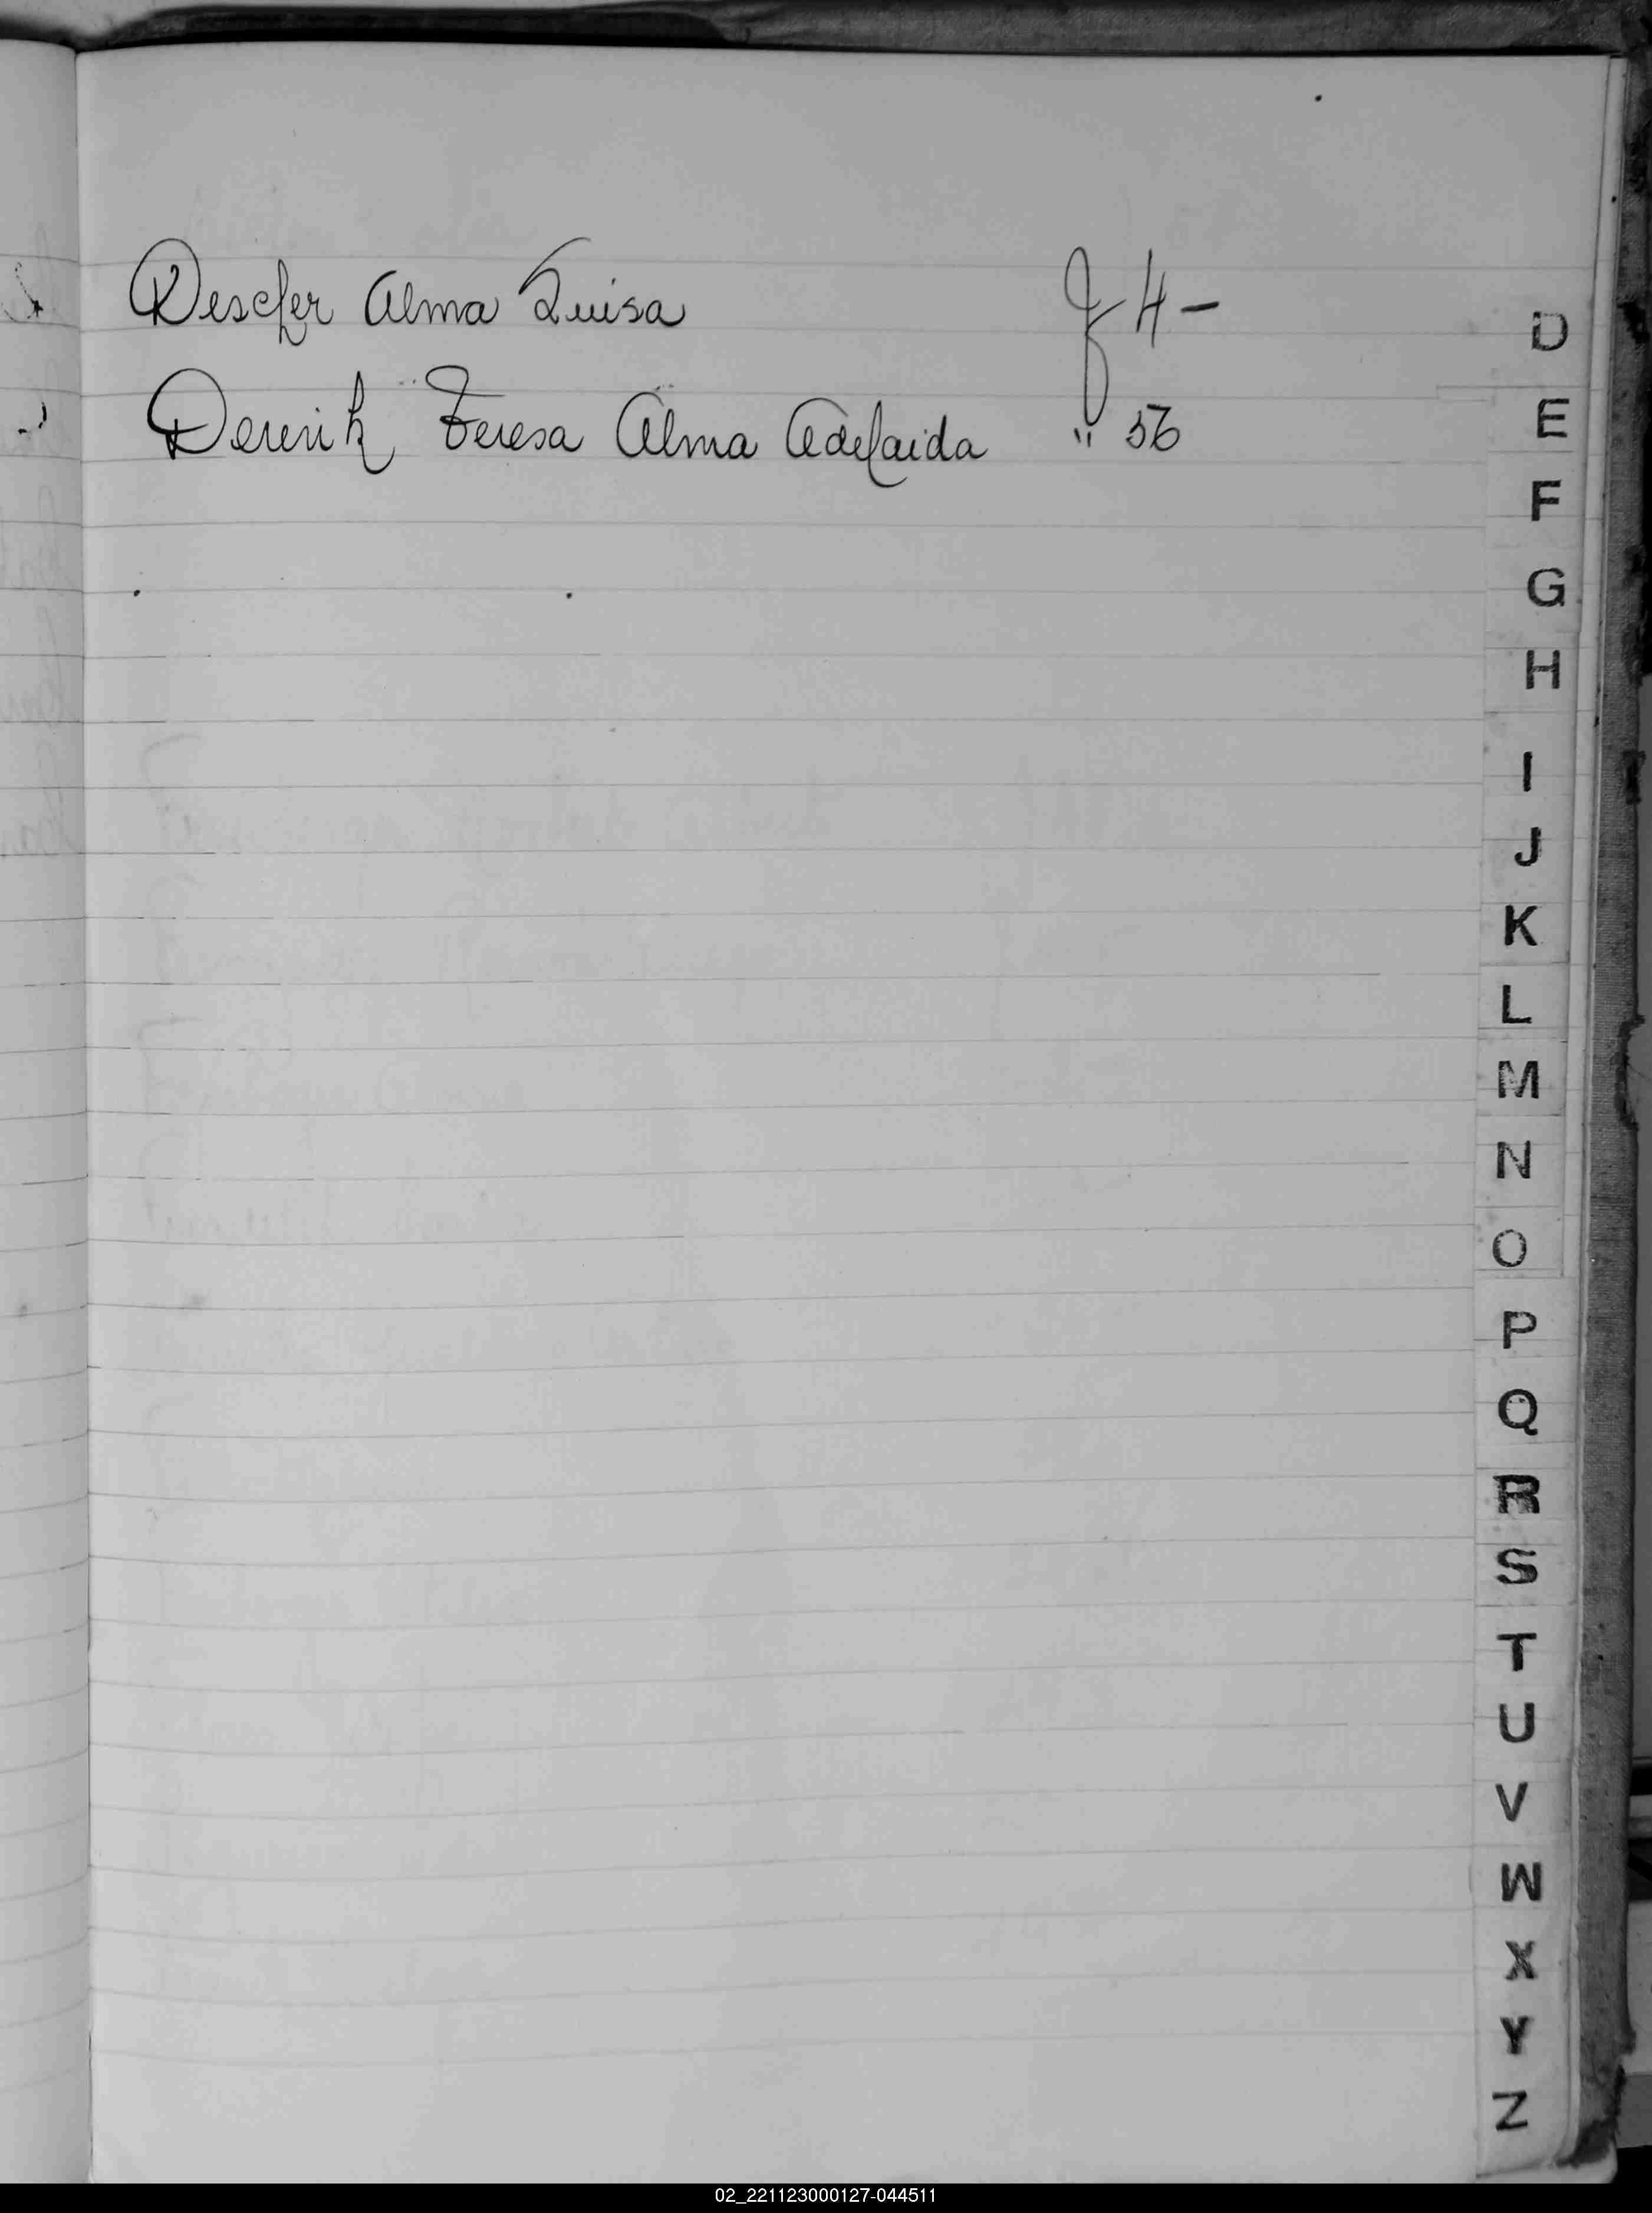 Descher Alma Luisa f 4 -
Derwih Teresa Alma Adelaida " 56
D
E
F
G
H
I
J
K
L
M
N
O
P
Q
R
S
T
U
V
W
X
Y
Z
02_221123000127-044511